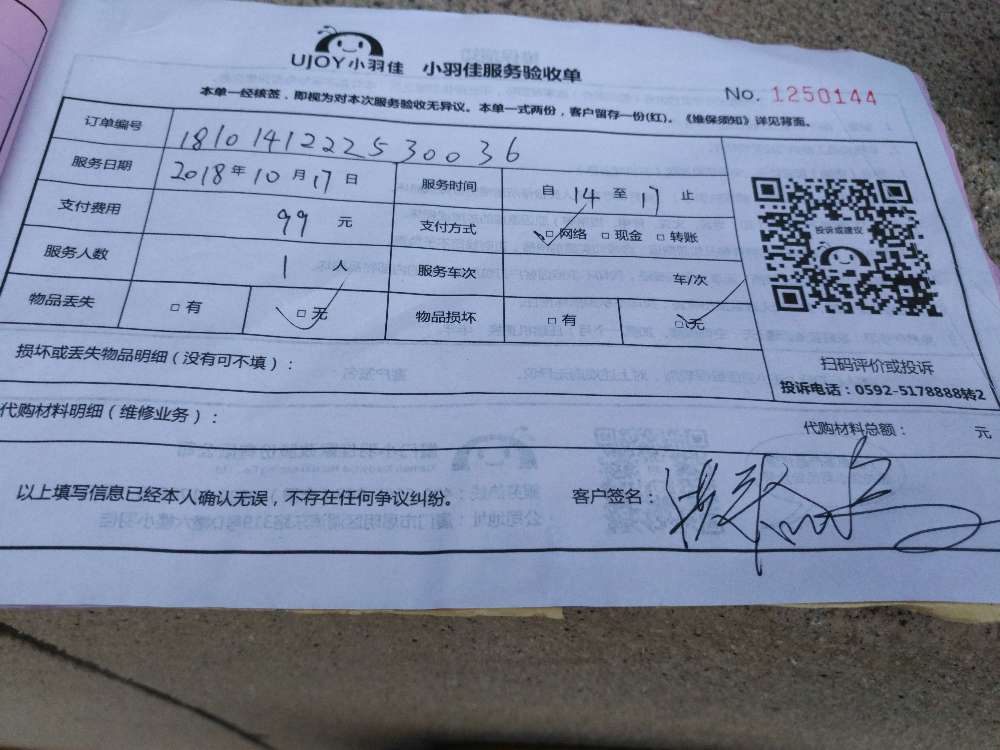 UJOY小羽佳 小羽佳服务验收单
No. 1250144
本单一经核签，即视为对本次服务验收无异议。本单一式两份，客户留存一份(红)。《维保须知》详见背面。
订单编号 181014122253 0036
服务日期 2018年10月17日 服务时间 自 14 至 17 止
支付费用 99 元 支付方式 □网络 □现金 □转账
服务人数 1 人 服务车次 车/次
物品丢失 □有 □无 物品损坏 □有 □无
投诉或建议
扫码评价或投诉
投诉电话：0592-5178888转2
损坏或丢失物品明细（没有可不填）：
代购材料明细（维修业务）： 代购材料总额： 元
以上填写信息已经本人确认无误，不存在任何争议纠纷。 客户签名：